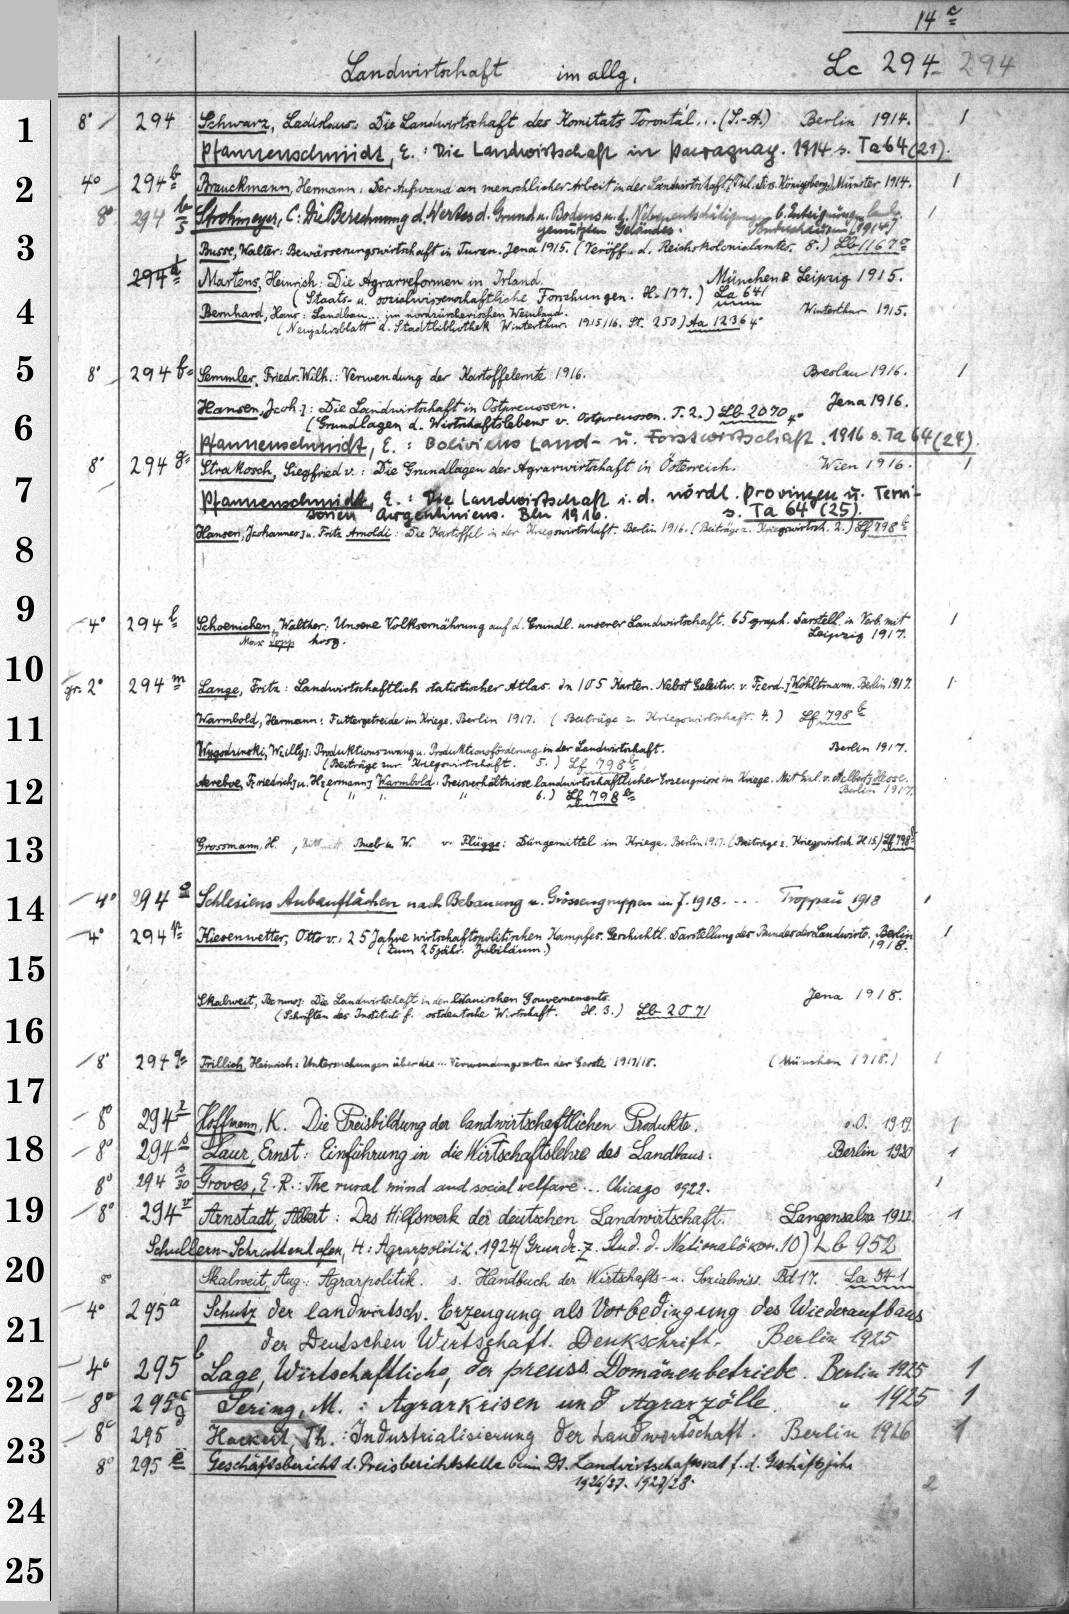 14 c
Landwirtschaft im allg. Lc 294 294
1 8° 294 Schwarz, Ladislaus: Die Landwirtschaft des Komitats Torontál... (S.-A.) Berlin 1914. 1
Pfannenschmidt, E.: Die Landwirtschaft in Paraguay. 1914 s. Ta 64 (21).
2 4° 294 b Brauckmann, Hermann: Der Aufwand an menschlicher Arbeit in der Landwirtschaft. Münster 1914. 1
8° 294 b/5 Strohmeyer, C: Die Berechnung d. Wertes d. Grund u. Bodens u. d. b. Enteignung
genutzten Geländes. (1914)
3 Busse, Walter: Bewässerungswirtschaft in Turan. Jena 1915. (Veröff. d. Reichskolonialamtes. 8.) Lb 1167 a
294 d Martens, Heinrich: Die Agrarreformen in Irland. München & Leipzig 1915.
(Staats- u. sozialwissenschaftliche Forschungen. H. 177.) La 641
4 Bernhard, Hans: Landbau... im nordzürcherischen Weinland. Winterthur 1915.
(Neujahrsblatt d. Stadtbibliothek Winterthur. 1915/16. St. 250) Aa 1236 4°
5 8° 294 f Semmler, Friedr. Wilh.: Verwendung der Kartoffelernte 1916. Breslau 1916. 1
Hansen, Joh.]: Die Landwirtschaft in Ostpreussen. Jena 1916.
6 (Grundlagen d. Wirtschaftslebens v. Ostpreussen. T. 2.) Lb 2070 4°
Pfannenschmidt, E.: Boliviens Land- u. Forstwirtschaft. 1916 s. Ta 64 (24).
8° 294 g Strakosch, Siegfried v.: Die Grundlagen der Agrarwirtschaft in Österreich. Wien 1916. 1
7 Pfannenschmidt, E.: Die Landwirtschaft i. d. nördl. Provinzen u. Terri-
torien Argentiniens. Bln 1916. s. Ta 64 (25).
Hansen, Johannes] u. Fritz Arnoldi: Die Kartoffel in der Kriegswirtschaft. Berlin 1916. (Beiträge z. Kriegswirtsch. 2.) Lf 798 b
8
9 4° 294 l Schoenichen, Walther: Unsere Volksernährung auf d. Grundl. unserer Landwirtschaft. 65 graph. Darstell. in Verb. mit 1
Max Popp hrsg. Leipzig 1917.
10 gr. 2° 294 m Lange, Fritz: Landwirtschaftlich statistischer Atlas. In 105 Karten. Nebst Geleitw. v. Ferd.] Wohltmann. Berlin 1917. 1
11 Warmbold, Hermann: Futtergetreide im Kriege. Berlin 1917. (Beiträge z. Kriegswirtschaft. 4.) Lf 798 b
Wygodzinski, Willy]: Produktionszwang u. Produktionsförderung in der Landwirtschaft. Berlin 1917.
(Beiträge zur Kriegswirtschaft. 5.) Lf 798 b
12 Aereboe, Friedrich] u. H[ermann] Warmbold: Preisverhältnisse landwirtschaftlicher Erzeugnisse im Kriege. Mit Einl. v. Albert] Hesse.
( " " " 6.) Lf 798 b Berlin 1917.
13 Grossmann, H., Bueb u. W. v. Flügge: Düngemittel im Kriege. Berlin 1917. (Beiträge z. Kriegswirtsch. H 15.) Lf 798 b
14 4° 294 o Schlesiens Anbauflächen nach Bebauung u. Grössengruppen im J. 1918.... Troppau 1918 1
4° 294 p Kiesenwetter, Otto v.: 25 Jahre wirtschaftspolitischen Kampfes. Geschichtl. Darstellung des Bundes der Landwirte. Berlin 1
(Zum 25jähr. Jubiläum.) 1918.
15
Skalweit, Bruno]: Die Landwirtschaft in den litauischen Gouvernements. Jena 1918.
(Schriften des Instituts f. ostdeutsche Wirtschaft. H. 3.) Lb 2071
16
8° 294 q Trillich, Heinrich: Untersuchungen über die... Verwendungsarten der Gerste 1917/18. (München 1918.) 1
17
8° 294 r Hoffmann, K. Die Preisbildung der landwirtschaftlichen Produkte. o.O. 1919. 1
18 8° 294 s Laur, Ernst: Einführung in die Wirtschaftslehre des Landbaus. Berlin 1920 1
8° 294 s/30 Groves, E. R.: The rural mind and social welfare... Chicago 1922. 1
19 8° 294 v Arnstadt, Albert: Das Hilfswerk der deutschen Landwirtschaft. Langensalza 1922. 1
Schullern-Schrattenhofen, H: Agrarpolitik. 1924 (Grundr. z. Stud. d. Nationalökon. 10) Lb 952
20 8° Skalweit, Aug.: Agrarpolitik. s. Handbuch der Wirtschafts- u. Sozialwiss. Bd 17. La 54-1
4° 295 a Schutz der landwirtsch. Erzeugung als Vorbedingung des Wiederaufbaus
21 der Deutschen Wirtschaft. Denkschrift. Berlin 1925
4° 295 b Lage, Wirtschaftliche, der preuss. Domänenbetriebe. Berlin 1925 1
22 8° 295 c Sering, M.: Agrarkrisen und Agrarzölle. " 1925 1
8° 295 d Hackert, Th.: Industrialisierung der Landwirtschaft. Berlin 1926 1
23 8° 295 e Geschäftsbericht d. Preisberichtstelle beim Dt. Landwirtschaftsrat f. d. Geschäftsjahr
1926/27. 1927/28. 2
24
25